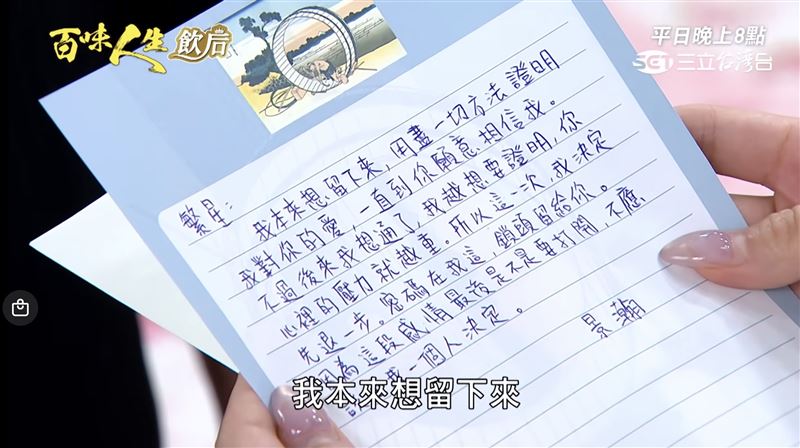 百味人生 飲后
平日晚上8點
SET三立台灣台
繁星:
我本來想留下來,用盡一切方法證明
我對你的愛,一直到你願意相信我。
不過後來我想通了,我越想要證明,你
心裡的壓力就越重。所以這一次,我決定
先退一步。密碼在我這,鎖頭留給你。
因為這段感情最後是不是要打開,不應
該我一個人決定。
景瀚
我本來想留下來